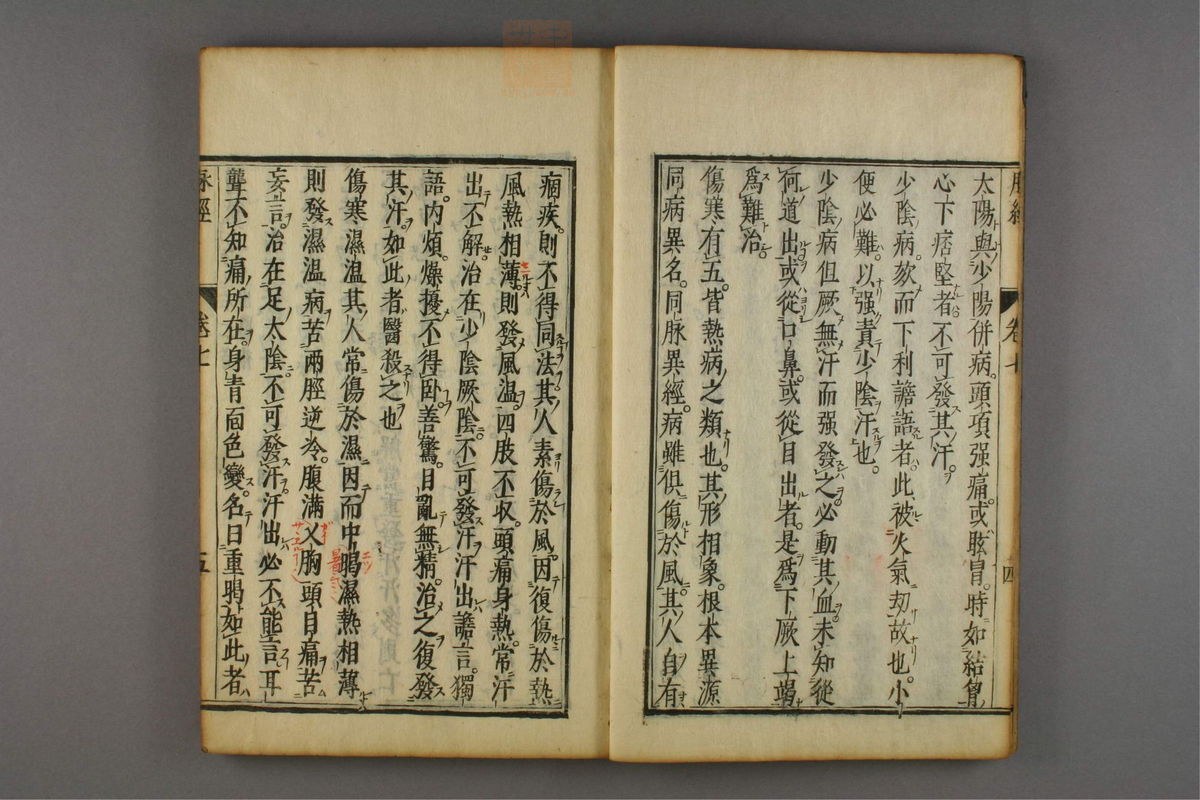 太陽與少陽併病頭項强痛或眩冒時如結胷
心下痞堅者不可發其汗
少陰病欬而下利譫語者此被火氣刧故也小
便必難以强責少陰汗也
少陰病但厥無汗而强發之必動其血未知從
何道出或從口鼻或從目出者是爲下厥上竭
爲難治
傷寒有五皆熱病之類也其形相象根本異源
同病異名同脉異經病雖俱傷於風其人自有
痼疾則不得同法其人素傷於風因復傷於熱
風熱相薄則發風温四肢不収頭痛身熱常汗
出不解治在少陰厥陰不可發汗汗出譫言獨
語内煩燥擾不得卧善驚目亂無精治之復發
其汗如此者醫殺之也
傷寒濕温其人常傷於濕因而中暍濕熱相薄
則發濕温病苦兩脛逆冷腹滿乂胸頭目痛苦
妄言治在足太陰不可發汗汗出必不能言耳
聾不知痛所在身青面色變名曰重暍如此者
脉經
卷七
五